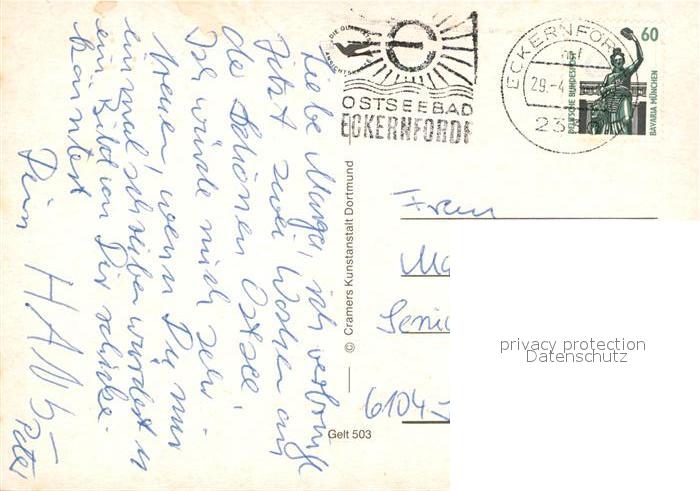 Liebe Marga, ich verbringe
jetzt zwei Wochen an
der schönen Ostsee.
Ich würde mich sehr
freuen, wenn Du mir
einmal schreiben würdest u
ein Bild von Dir schicken
könntest
Dein HANS-
Peter
DIE GUTE
ANSICHTSKARTE
OSTSEEBAD
ECKERNFÖRDE
ECKERNFÖR
29.-4
23
60
DEUTSCHE BUNDESPOST
BAVARIA MÜNCHEN
© Cramers Kunstanstalt Dortmund
Frau
Ma
Seni
6104-
Gelt 503
privacy protection
Datenschutz